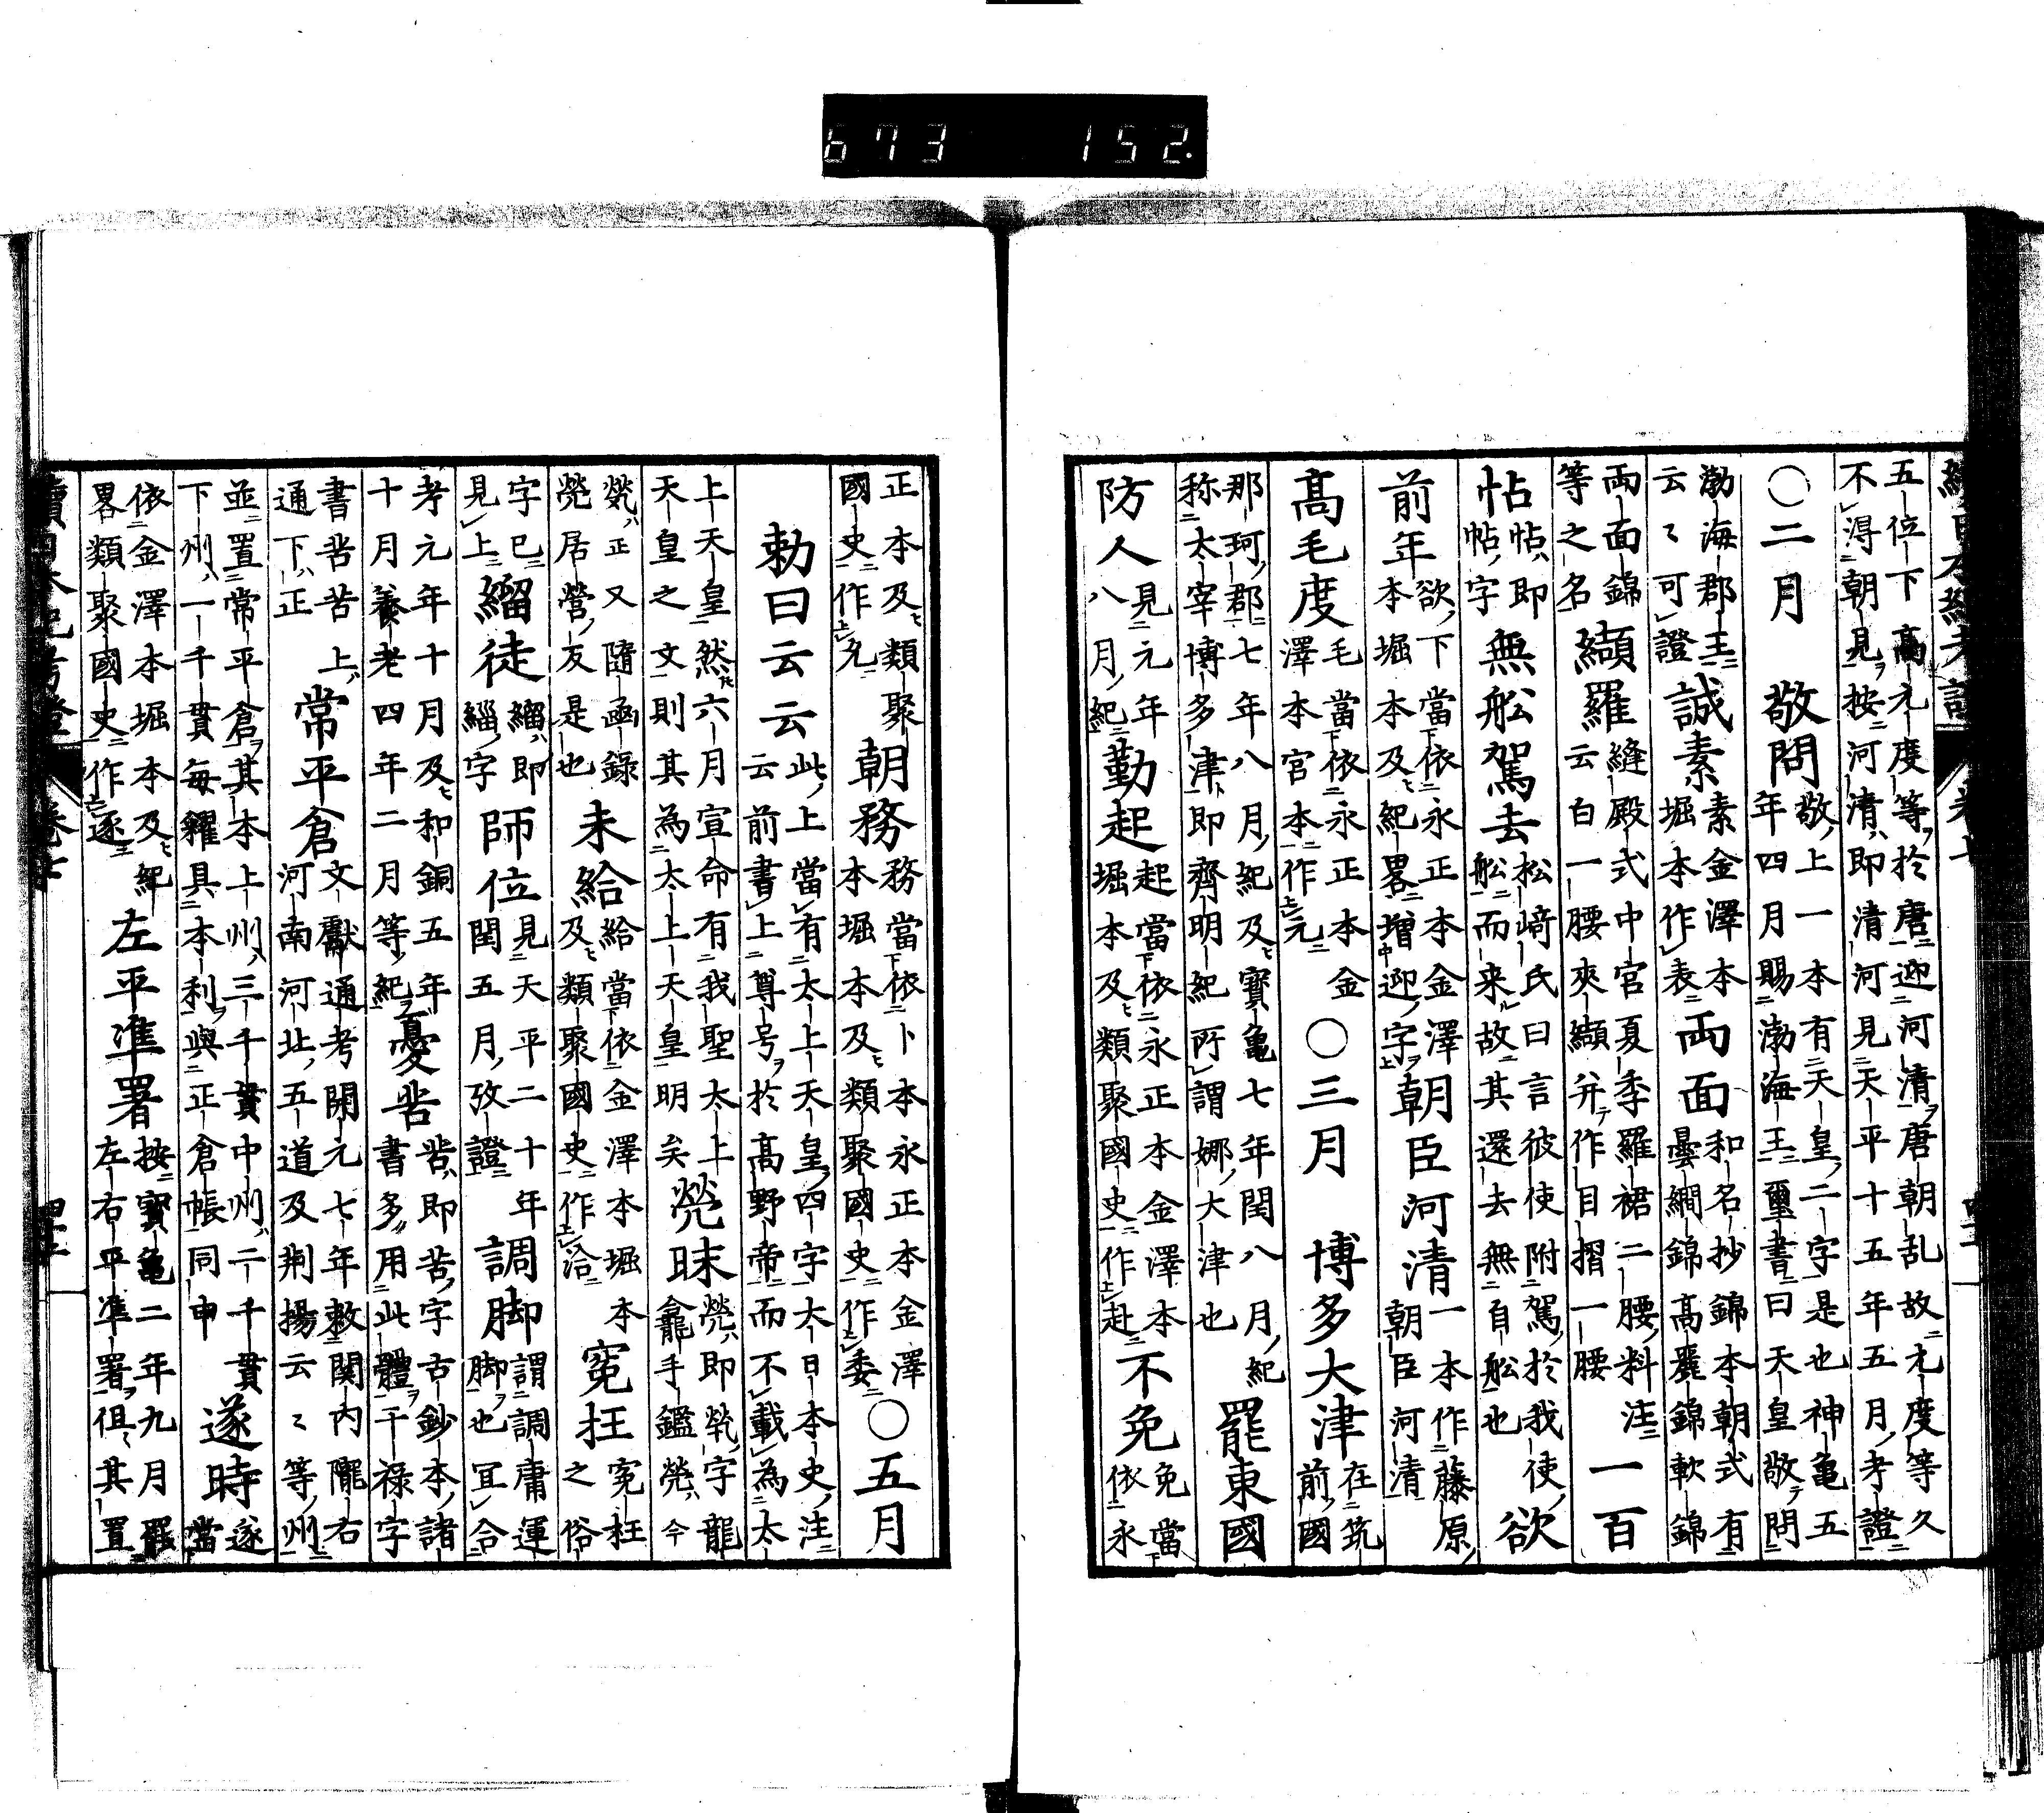 五位下高元度等於唐迎河清唐朝乱故元度等久
不得朝見按河清即清河見天平十五年五月考證
○二月 敬問 敬上一本有天皇二字是也神亀五
年四月賜渤海王璽書曰天皇敬問
渤海郡王
云々可證 誠素 素金澤本
堀本作表 両面 和名抄錦本朝式有
暈繝錦高麗錦軟錦
両面錦
等之名 纈羅 縫殿式中宮夏季羅裙二腰料注
云白一腰夾纈并作目摺一腰 一百
帖 帖即
帖字 無舩駕去 松﨑氏曰言彼使附駕於我使
舩而来故其還去無自舩也 欲
前年 欲下當依永正本金澤
本堀本及紀畧増迎字 朝臣河清 一本作藤原
朝臣河清
高毛度 毛當依永正本金
澤本宮本作元 ○三月 博多大津 在筑
前國
那珂郡七年八月紀及寶亀七年閏八月紀
称太宰博多津即齊明紀所謂娜大津也 罷東國
防人 見元年
八月紀 勤起 起當依永正本金澤本
堀本及類聚國史作赴 不免 免當
依永
正本及類聚
國史作克 朝務 務當依卜本永正本金澤
本堀本及類聚國史作委 ○五月
勅曰云云 此上當有太上天皇四字大日本史注
云前書上尊号於高野帝而不載為太
上天皇然六月宣命有我聖太上
天皇之文則其為太上天皇明矣 煢眛 煢即㷀字龍
龕手鑑煢今
㷀正又隨函錄
煢居營反是也 未給 給當依金澤本堀本
及類聚國史作洽 冤枉 冤枉
之俗
字已
見上 緇徒 緇即
緇字 師位 見天平二十年
閏五月攷證 調脚 謂調庸運
脚也冝合
考元年十月及和銅五年
十月養老四年二月等紀 憂㖈 㖈即苦字古鈔本諸
書多用此體干禄字
書㖈苦上
通下正 常平倉 文獻通考開元七年敕関内隴右
河南河北五道及荆揚云々等州
並置常平倉其本上州三千貫中州二千貫
下州一千貫毎糴具本利與正倉帳同申 遂時 遂當
依金澤本堀本及紀
畧類聚國史作逐 左平凖署 按寶亀二年九月罷
左右平凖署但其置